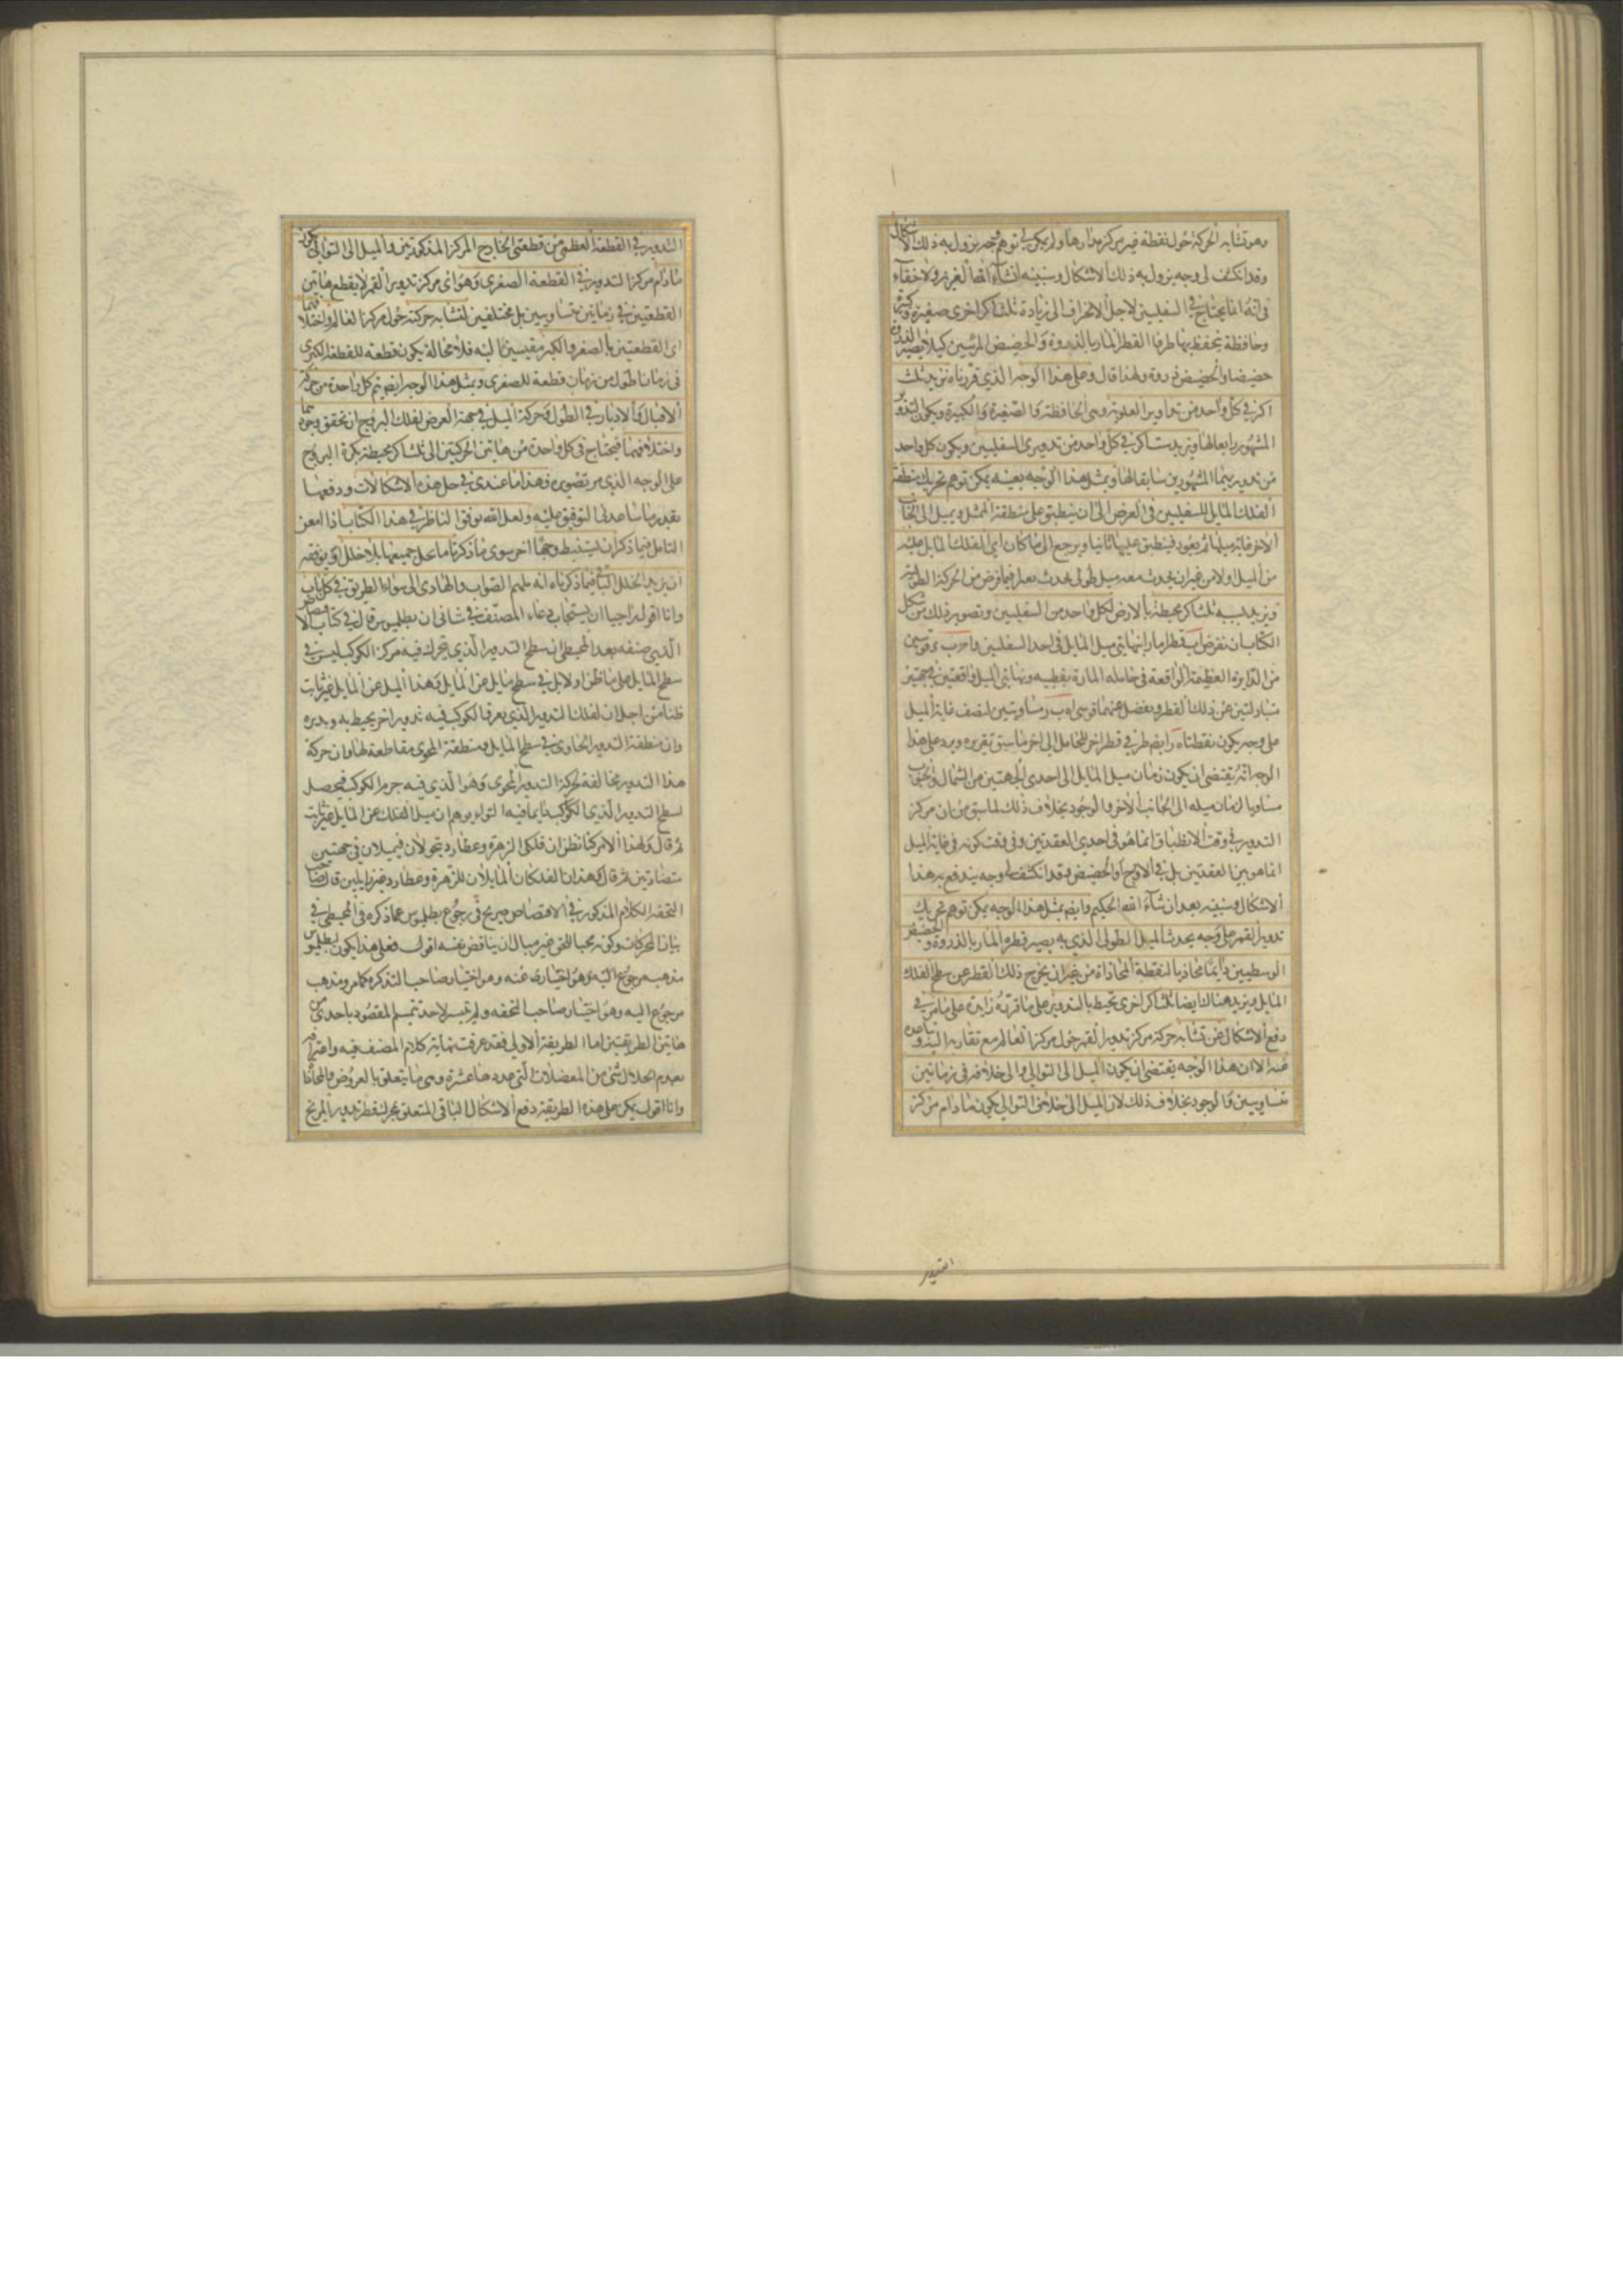 وهو تشابه الحركة حول نقطة غير مركز مدارها ولم يمكن لي توهم وجه يزول به ذلك الاشكال
وقد انكشف لي وجه يزول به ذلك الاشكال وسنبينه انشاء الله العزيز ولا خفاء
في انه انما يحتاج في السفليين لاجل الانحراف الى زيادة ثلث اكر اخرى صغيرة وكبيرة
وحافظة يحفظ بها طرفا القطر المار بالذروة والحضيض المرئيين كيلا يصير الذروة
حضيضا والحضيض ذروة ولهذا قال وعلى هذا الوجه الذي قررناه نزيد ثلث
اكر في كل واحد من تداوير العلوية وهي الحافظة والصغيرة والكبيرة ويكون التدوير
المشهور رابعا لها ونزيد ست اكر في كل واحد من تدويري السفليين ويكون كل واحد
من تدويريهما المشهورين سابعا لها وبمثل هذا الوجه بعينه يمكن توهم تحريك منطقة
الفلك المايل للسفليين في العرض الى ان ينطبق على منطقة الممثل ويميل الى الجانب
الاخر غاية ميلها ثم يعود فينطبق عليها ثانيا ويرجع الى ما كان اي الفلك المايل عليه
من الميل اولا من غير ان يحدث معه ميل طولي يحدث بعد فيما فرض من الحركة الطولية
ونزيد بسببه ثلث اكر محيطة بالارض لكل واحد من السفليين وتصوير ذلك من شكل
الكتاب ان نفرض قطرا مارا بنهايتي ميل المايل في احد السفليين
من الدايرة العظيمة الواقعة في حامله المارة بقطبيه ونهايتي الميل واقعتين في جهتين
متبادلتين عن ذلك القطر ونفصل عنهما قوسي متساويتين لنصف غاية الميل
على وجه يكون نقطتاه رايضا طرفي قطر اخر للحامل الى اخر ما سبق تقريره ويرد على هذا
الوجه انه يقتضي ان يكون زمان ميل المايل الى احدى الجهتين من الشمال والجنوب
مساويا لزمان ميله الى الجانب الاخر والوجود بخلاف ذلك لما سبق من ان مركز
التدوير في وقت الانطباق انما هو في احدى العقدتين وفي وقت كونه في غاية الميل
انما هو بين العقدتين بل في الاوج او الحضيض وقد انكشف لي وجه يندفع به هذا
الاشكال وسنبينه بعد ان شاء الله الحكيم وايضا بمثل هذا الوجه يمكن توهم تحريك
تدوير القمر على وجه يحدث الميل الطولي الذي به يصير قطره المار بالذروة والحضيض
الوسطيين دايما محاذيا لنقطة المحاذاة من غير ان يخرج ذلك القطر عن سطح الفلك
المايل ونزيد هناك ايضا ثلث اكر اخرى تحيط بالتدوير على ما قررته زايدة على ما مر في
دفع الاشكال عن تشابه حركة مركز تدوير القمر حول مركز العالم مع تقاربه اليه وتباعده
عنه الا ان هذا الوجه يقتضي ان يكون الميل الى التوالي والى خلافه في زمانين
متساويين والوجود بخلاف ذلك لان الميل الى خلاف التوالي يكون ما دام مركز
التدوير
التدوير في القطعة العظمى من قطعتي الخارج المركز المذكورتين والميل الى التوالي يكون
ما دام مركز التدوير في القطعة الصغرى وهو اي مركز تدوير القمر لا يقطع هاتين
القطعتين في زمانين متساويين بل مختلفين لتشابه حركته حول مركز العالم واختلافهما
اي القطعتين بالصغر والكبر مقيسين اليه فلا محالة يكون قطعه للقطعة الكبرى
في زمان اطول من زمان قطعه للصغرى وبمثل هذا الوجه ايضا يتم كل واحدة من حركة
الاقبال والادبار في الطول وحركة الميل في جهة العرض لفلك البروج ان تحقق وجودهما
واختلافهما فيحتاج في كل واحدة من هاتين الحركتين الى ثلث اكر محيطة بكرة البروج
على الوجه الذي مر تصويره فهذا ما عندي في حل هذه الاشكالات ودفعها
بقدر ما ساعدني التوفيق عليه ولعل الله يوفق الناظر في هذا الكتاب اذا امعن
التامل فيما ذكر ان يستنبط وجها اخر سوى ما ذكرنا ما عل جميعها بلا خلل او يوفقه
ان يزيد الخلل الباقي فيما ذكرناه انه ملهم الصواب والهادي الى سواء الطريق في كل باب
وانا اقول راجيا ان يستجاب دعاء المصنف في شاني ان بطلميوس قال في كتاب الاقتصاص
الذي صنفه بعد المجسطي ان سطح التدوير الذي يتحرك فيه مركز الكوكب ليس في
سطح المايل على ما ظن اولا بل في سطح مايل عن المايل وهذا الميل عن المايل غير ثابت
ظنا من اجل ان لفلك التدوير الذي يعرف الكوكب فيه تدوير اخر يحيط به ويديره
وان منطقة التدوير الحاوي في سطح المايل ومنطقة المحوي مقاطعة لها وان حركة
هذا التدوير مخالفة لحركة التدوير المحوي وهو الذي فيه جرم الكوكب فيحصل
لسطح التدوير الذي الكوكب دايما فيه التواء يوهم ان ميل الفلك عن المايل غير ثابت
ثم قال ولهذا الامر كنا نظن ان فلكي الزهرة وعطارد يتحولان فيميلان في جهتين
متضادتين ثم قال فهذان الفلكان المايلان للزهرة وعطارد غير زايلين قال صاحب
التحفة الكلام المذكور في الاقتصاص صريح في رجوع بطلميوس عما ذكره في المجسطي في
بيان الحركات وكونه محبا للحق غير مبال ان يناقض نفسه اقول فعلى هذا يكون لبطلميوس
مذهب مرجوع اليه وهو اختياري عنه وهو اختيار صاحب التذكرة كما مر ومذهب
مرجوع اليه وهو اختيار صاحب التحفة ولم يتيسر لاحد تتميم المقصود باحدى
هاتين الطريقتين اما الطريقة الاولى فقد عرفت نهاية كلام المصنف فيه واعترافه
بعدم انحلال شيء من المعضلات التي عددها عشرة وهي ما يتعلق بالعروض والمحاذاة
وانا اقول يمكن على هذه الطريقة دفع الاشكال الباقي المتعلق بحركة قطر تدوير المريخ